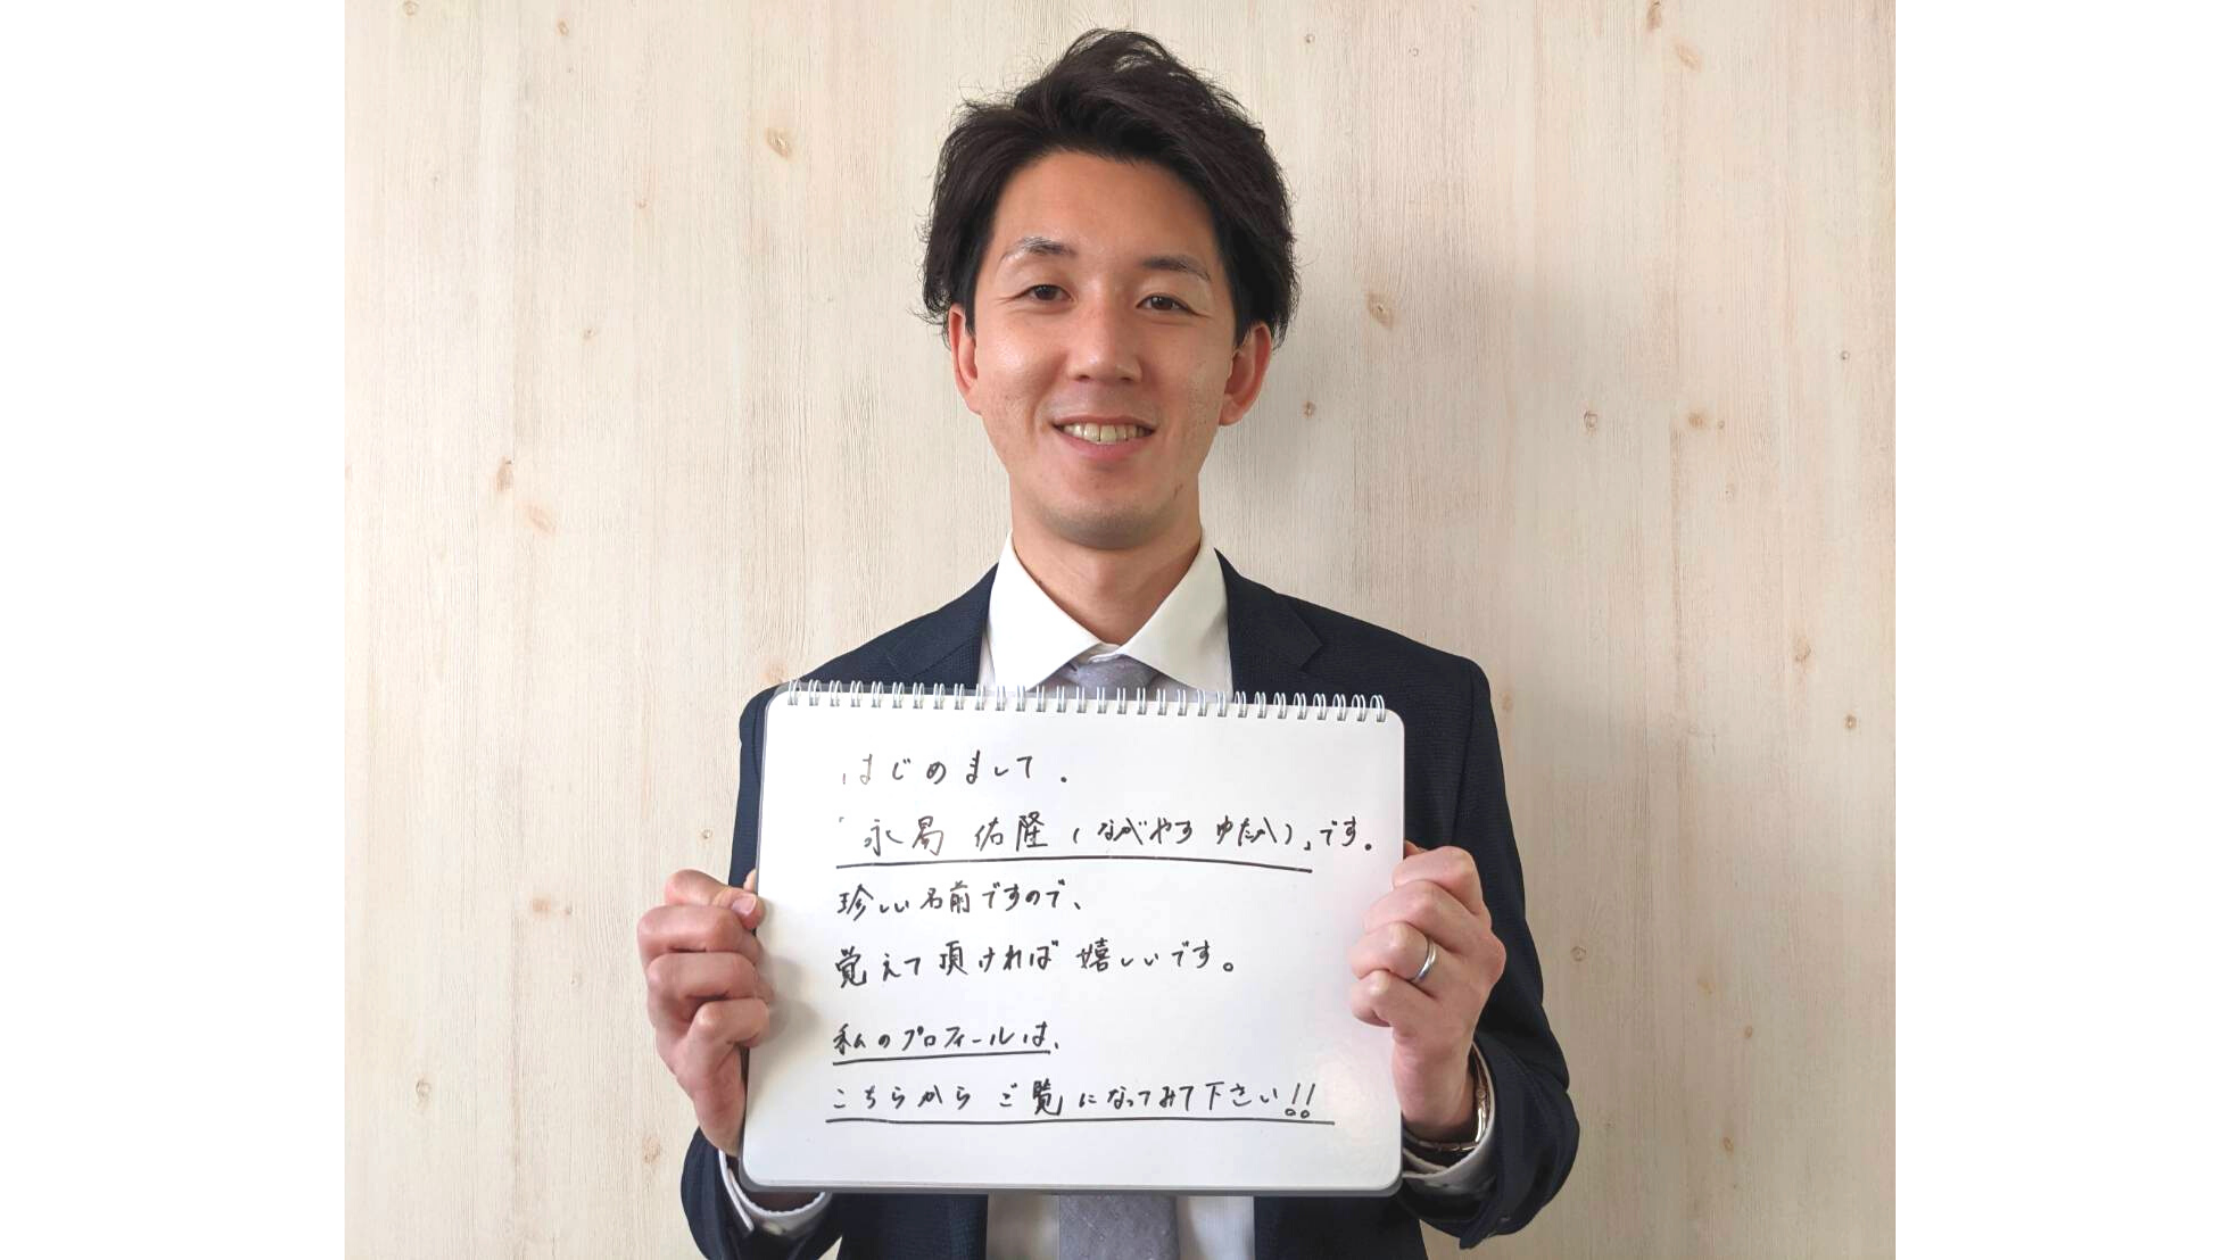 はじめまして.
「永易 佑隆(ながやす ゆたか)」です。
珍しい名前ですので、
覚えて頂ければ嬉しいです。
私のプロフィールは、
こちらからご覧になってみて下さい!!